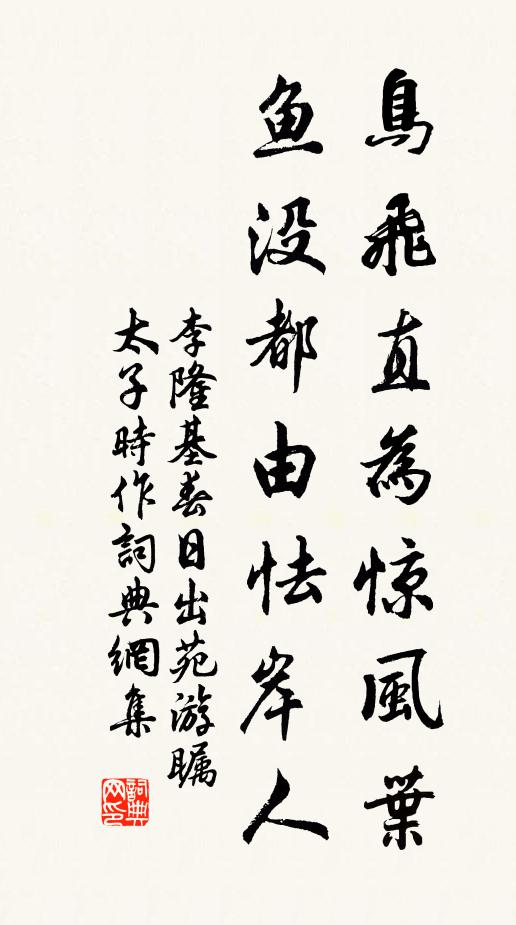 鳥飛直為惊風葉
鱼没都由怯岸人
李隆基春日出苑游瞩
太子時作詞典網集
詞典
网印